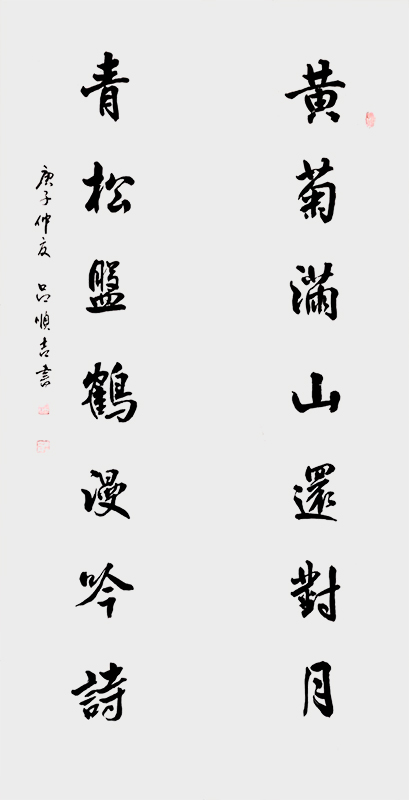 黄菊滿山還對月
青松盤鶴漫吟詩
庚子仲夏 呂順吉書